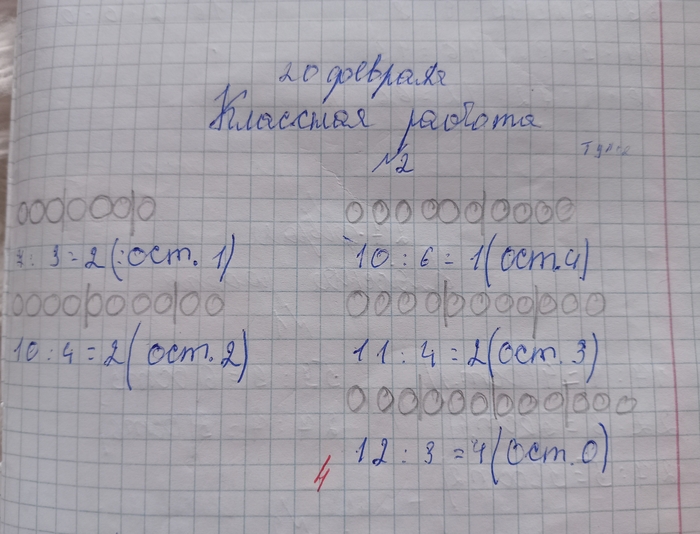 20 февраля
Классная работа
№2
7 : 3 = 2 (ост. 1)
10 : 6 = 1 (ост. 4)
10 : 4 = 2 (ост. 2)
11 : 4 = 2 (ост. 3)
12 : 3 = 4 (ост. 0)
4